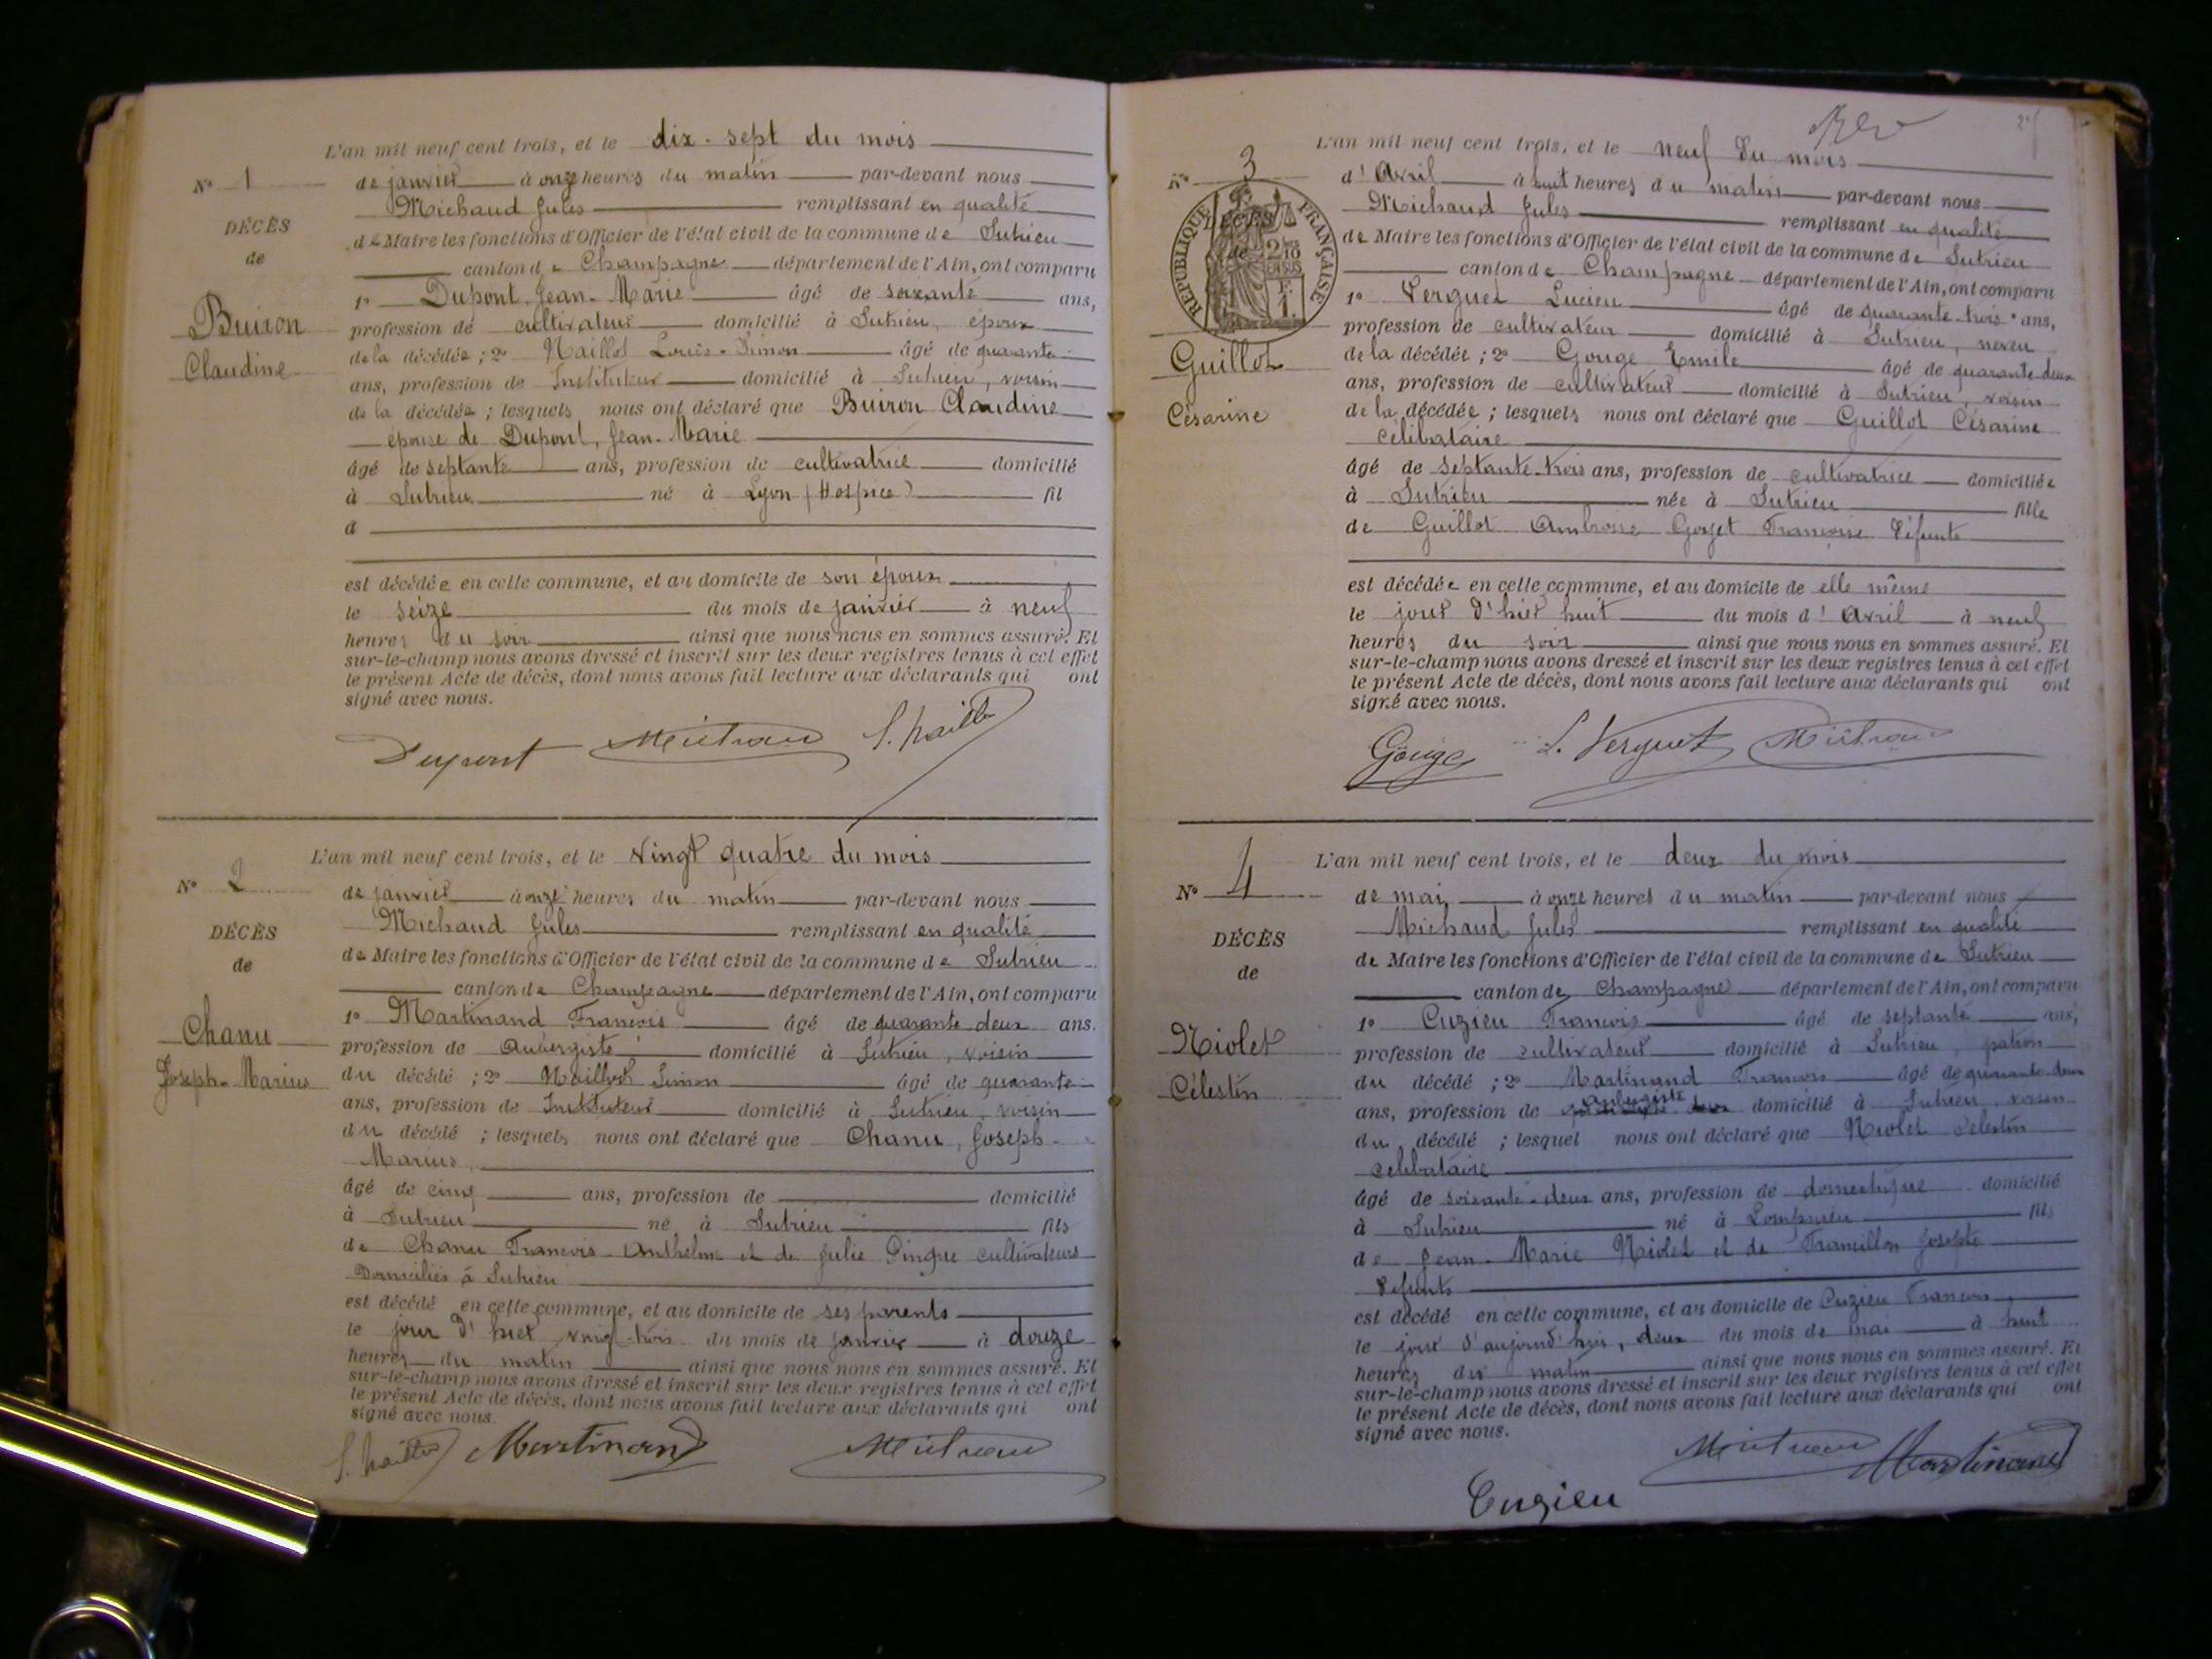 L'an mil neuf cent trois, et le dix-sept du mois
N° 1
de janvier à onze heures du matin par-devant nous
Michaud Jules remplissant en qualité
DÉCÈS
de Maire les fonctions d'Officier de l'état civil de la commune de Sutrieu
de
canton de Champagne département de l'Ain, ont comparu
1° Dupont Jean-Marie âgé de soixante ans,
Buiron
profession de cultivateur domicilié à Sutrieu, époux
Claudine
de la décédée ; 2° Naillod Louis-Simon âgé de quarante
ans, profession de Instituteur domicilié à Sutrieu, voisin
de la décédée ; lesquels nous ont déclaré que Buiron Claudine
épouse de Dupont, Jean-Marie
âgé de septante ans, profession de cultivatrice domicilié
à Sutrieu né à Lyon (Hospice) fil
d
est décédée en cette commune, et au domicile de son époux
le seize du mois de janvier à neuf
heures du soir ainsi que nous nous en sommes assuré. Et
sur-le-champ nous avons dressé et inscrit sur les deux registres tenus à cet effet
le présent Acte de décès, dont nous avons fait lecture aux déclarants qui ont
signé avec nous.
Dupont
L'an mil neuf cent trois, et le vingt quatre du mois
N° 2
de janvier à onze heures du matin par-devant nous
Michaud Jules remplissant en qualité
DÉCÈS
de Maire les fonctions d'Officier de l'état civil de la commune de Sutrieu
de
canton de Champagne département de l'Ain, ont comparu
1° Martinand François âgé de quarante deux ans.
Chanu
profession de Aubergiste domicilié à Sutrieu, voisin
Joseph-Marius
du décédé ; 2° Naillod Simon âgé de quarante
ans, profession de Instituteur domicilié à Sutrieu, voisin
du décédé ; lesquels nous ont déclaré que Chanu, Joseph-
Marius,
âgé de cinq ans, profession de domicilié
à Sutrieu né à Sutrieu fils
de Chanu François-Anthelme et de Julie Pingue cultivateurs
Domiciliés à Sutrieu
est décédé en cette commune, et au domicile de ses parents
le jour d'hier vingt-trois du mois de janvier à douze
heures du matin ainsi que nous nous en sommes assuré. Et
sur-le-champ nous avons dressé et inscrit sur les deux registres tenus à cet effet
le présent Acte de décès, dont nous avons fait lecture aux déclarants qui ont
signé avec nous.
Martinand
L'an mil neuf cent trois, et le neuf du mois
N° 3
d'Avril à huit heures du matin par-devant nous
Michaud Jules remplissant en qualité
RÉPUBLIQUE FRANÇAISE
DÉCÈS
de Maire les fonctions d'Officier de l'état civil de la commune de Sutrieu
canton de Champagne département de l'Ain, ont comparu
1° Verguet Lucien âgé de quarante-trois ans,
profession de cultivateur domicilié à Sutrieu, neveu
Guillot
de la décédée ; 2° Gouge Emile âgé de quarante-deux
ans, profession de cultivateur domicilié à Sutrieu, voisin
Césarine
de la décédée ; lesquels nous ont déclaré que Guillot Césarine
célibataire
âgé de septante-trois ans, profession de cultivatrice domiciliée
à Sutrieu née à Sutrieu fille
de Guillot Ambroise Goyet Françoise Défunts
est décédée en cette commune, et au domicile de elle même
le jour d'hier huit du mois d'Avril à neuf
heures du soir ainsi que nous nous en sommes assuré. Et
sur-le-champ nous avons dressé et inscrit sur les deux registres tenus à cet effet
le présent Acte de décès, dont nous avons fait lecture aux déclarants qui ont
signé avec nous.
Gouge L. Verguet
L'an mil neuf cent trois, et le deux du mois
N° 4
de mai à onze heures du matin par-devant nous
Michaud Jules remplissant en qualité
DÉCÈS
de Maire les fonctions d'Officier de l'état civil de la commune de Sutrieu
de
canton de Champagne département de l'Ain, ont comparu
1° Cuzieu François âgé de septante ans,
Niolet
profession de cultivateur domicilié à Sutrieu, patron
Célestin
du décédé ; 2° Martinand François âgé de quarante-deux
ans, profession de aubergiste domicilié à Sutrieu, voisin
du décédé ; lesquel nous ont déclaré que Niolet Célestin
célibataire
âgé de soixante-deux ans, profession de domestique domicilié
à Sutrieu né à Lompnieu fils
de Jean-Marie Niolet et de Francillon Josephte
Défunts
est décédé en cette commune, et au domicile de Cuzieu François
le jour d'aujourd'hui, deux du mois de mai à huit
heures du matin ainsi que nous nous en sommes assuré. Et
sur-le-champ nous avons dressé et inscrit sur les deux registres tenus à cet effet
le présent Acte de décès, dont nous avons fait lecture aux déclarants qui ont
signé avec nous.
Martinand
Cuzieu